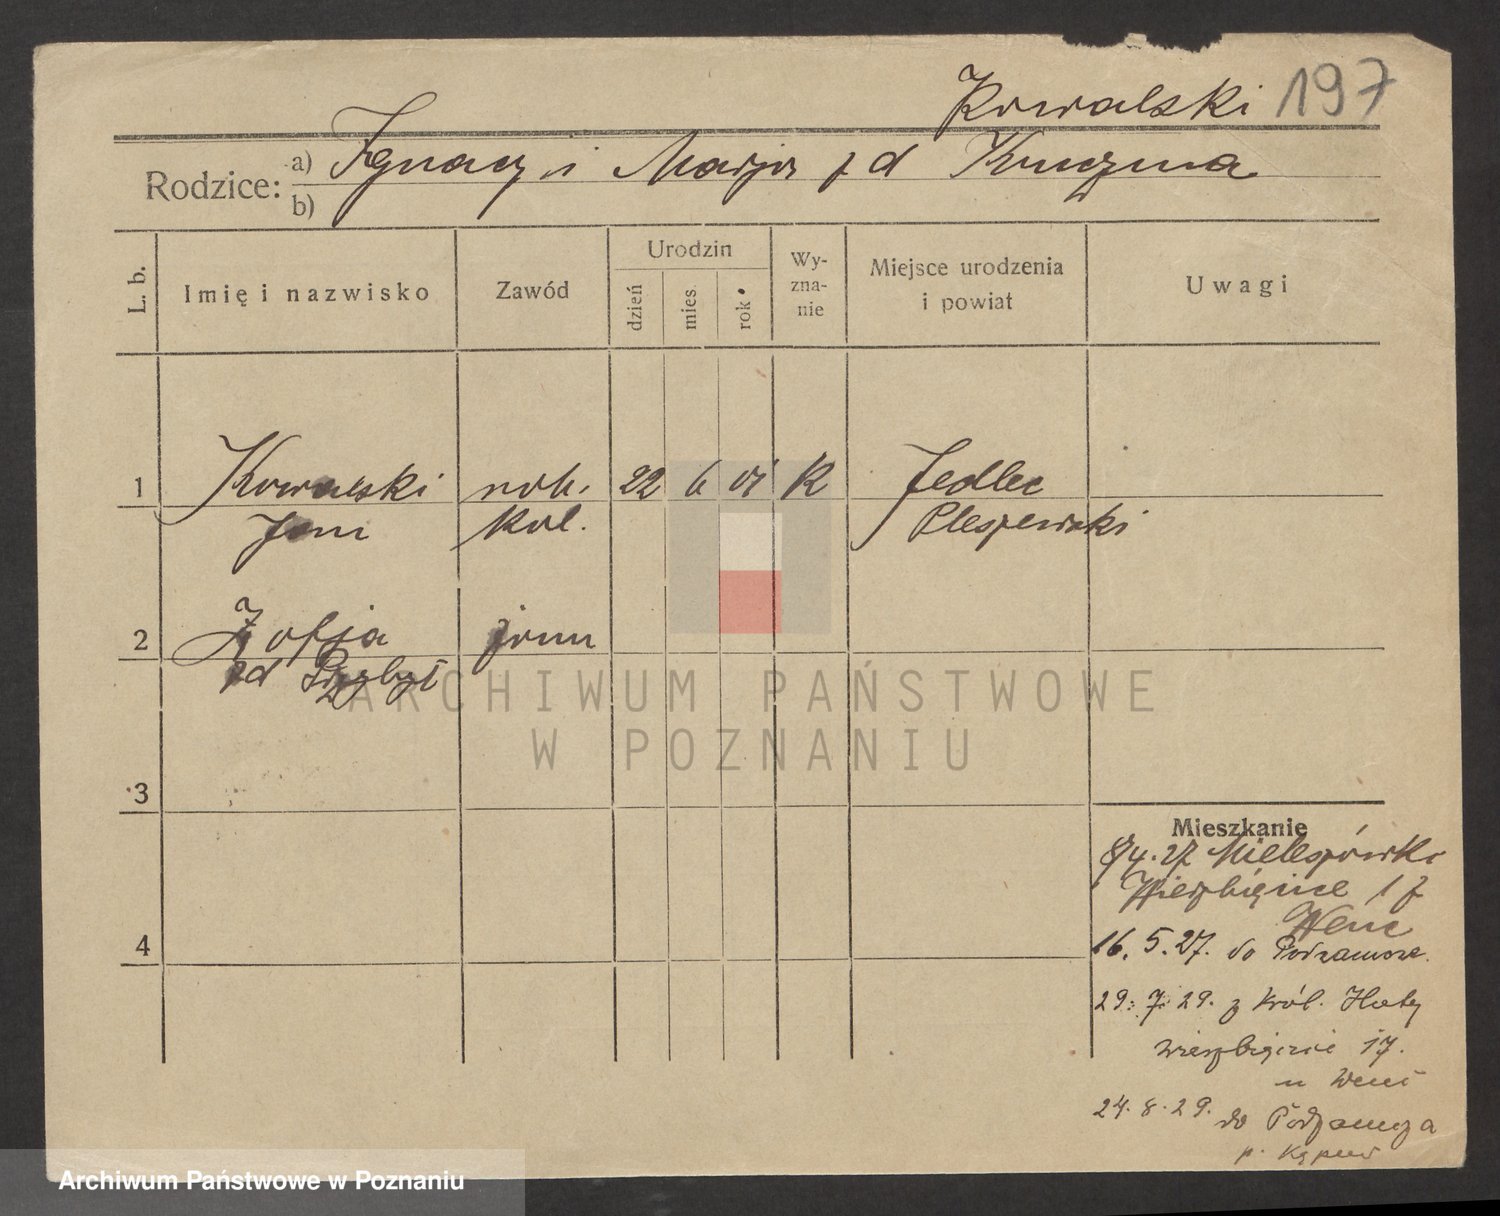 Kowalski 197
Rodzice: a) Ignacy i Marja z d Kuczma
b)
L. b.
Imię i nazwisko
Zawód
Urodzin
dzień
mies.
rok
Wy-
zna-
nie
Miejsce urodzenia
i powiat
Uwagi
1 Kowalski rob. 22 6 01 K Jedlec
Jan kol. Pleszewski
2 Zofja żona
zd Przybył
3
4
Mieszkanie
8/4.27
Wierzbięcice 17
Wenc
16.5.27. do Podzamcze.
29.7.29. z Król. Huty
Wierzbięcice 17.
u Wenc
24.8.29. do Podzamcza
p. Kępno
ARCHIWUM PAŃSTWOWE
W POZNANIU
Archiwum Państwowe w Poznaniu